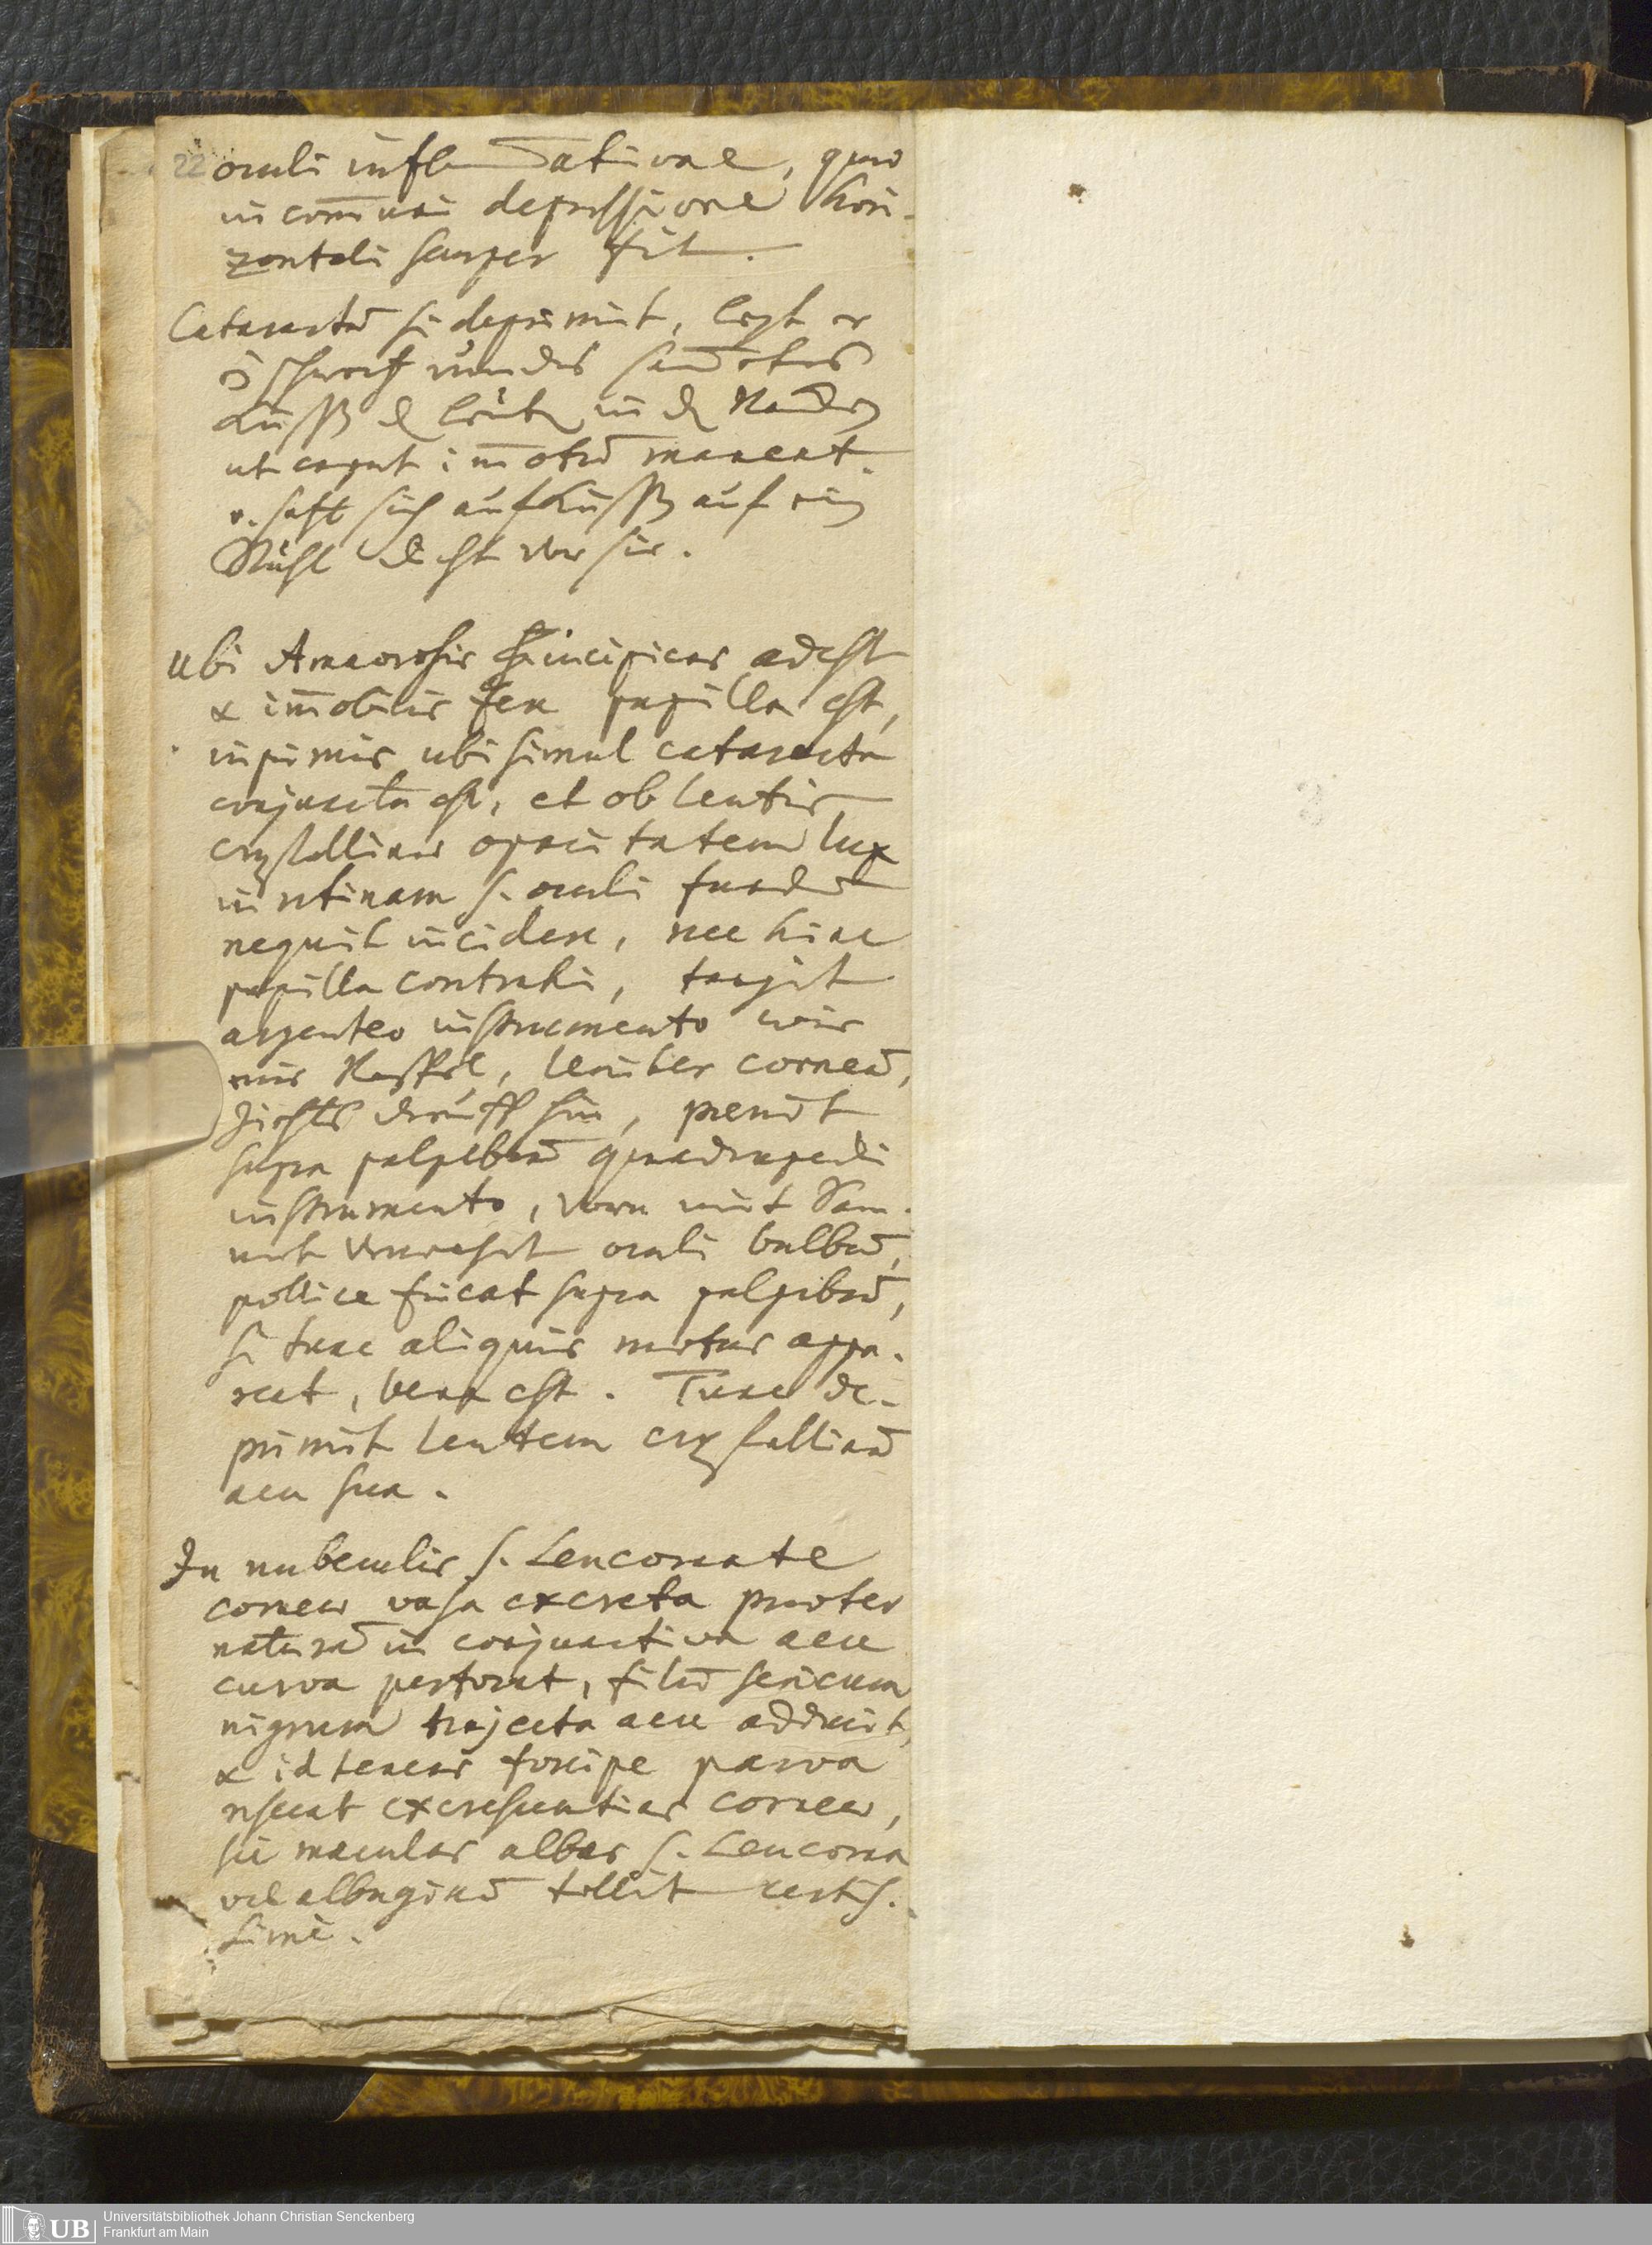 22 oculi inflam̅ativae, quod
in com̅uni depressione hori-
zontali semper fit.
Cataractã si deprimit, legt er
Küssẽ d leütẽ in dẽ Nacken
ut caput im̅otũ maneat.
Stuhl dicht vor sie.
Ubi Amaurosis incipiens adest
& im̅obilis fere pupilla est,
inprimis ubi simul cataracta
conjuncta est, et ob lentis
crystallinae opacitatem lux
in retinam s. oculi fundũ
nequit incidere, nec hinc
pupilla contrahi, tangit
argenteo instrumento wie
eine, leniter corneã,
drauff hin, premit
supra palpebrã quadrupedi
instrumento, vorn mit Sam-
met verwahrt oculi bulbũ,
pollice fricat supra palpebrã,
si tunc aliquis motus appa-
reat, bene est. Tunc de-
primit lentem crystallinã
acu sua.
In nubeculis s. Leucomate
corneae vasa excreta praeter
naturã in conjunctiva acu
curva perforat, filũ sericum
nigrum trajecta acu adducit,
& id tenens forcipe parva
resecat excrescentias corneae,
sic maculas albas s. Leucoma
vel albuginẽ tollit certis-
sime.
Universitätsbibliothek Johann Christian Senckenberg
Frankfurt am Main
UB